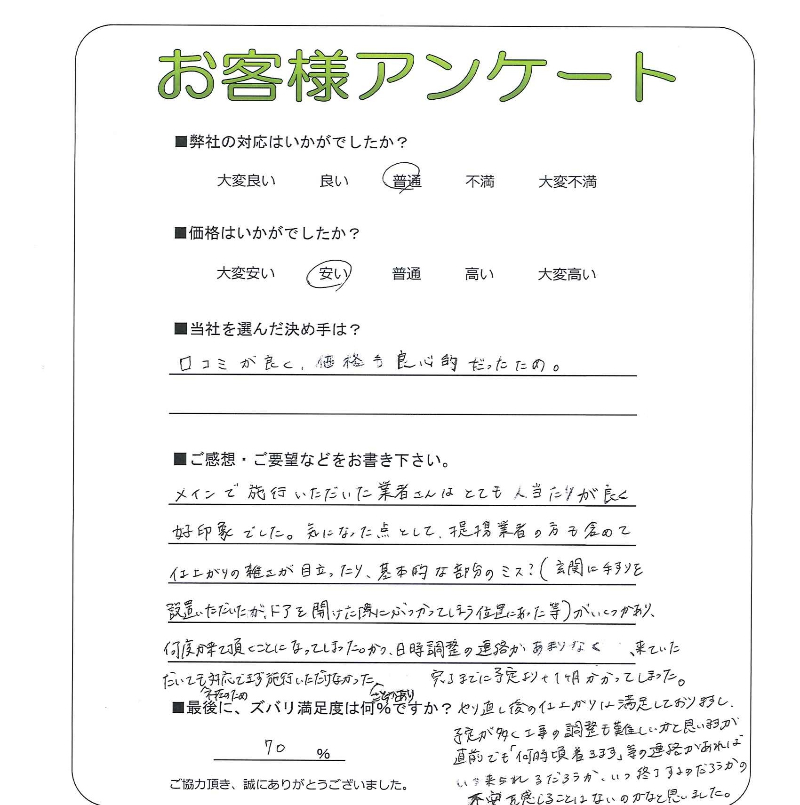 お客様アンケート
■弊社の対応はいかがでしたか？
大変良い 良い 普通 不満 大変不満
■価格はいかがでしたか？
大変安い 安い 普通 高い 大変高い
■当社を選んだ決め手は？
口コミが良く、価格も良心的だったため。
■ご感想・ご要望などをお書き下さい。
メインで施行いただいた業者さんはとても人当たりが良く
好印象でした。気になった点として、提携業者の方も含めて
仕上がりの雑さが目立ったり、基本的な部分のミス?(玄関に手すりを
設置いただいたが、ドアを開けた際にぶつかってしまう位置にあった等)がいくつかあり、
何度か来て頂くことになってしまった。かつ、日時調整の連絡があまりなく、来ていた
だいても対応できず施行いただけなかった 完了までに予定より+1ヶ月かかってしまった。
不在のため
ことがあり
■最後に、ズバリ満足度は何%ですか？
やり直し後の仕上がりは満足しておりますし、
予定が多く工事の調整も難しいかと思いますが
直前でも「何時頃着きます」等の連絡があれば
いつ来られるだろうか、いつ終了するのだろうかの
不安を感じることはないのかなと思いました。
70 %
ご協力頂き、誠にありがとうございました。